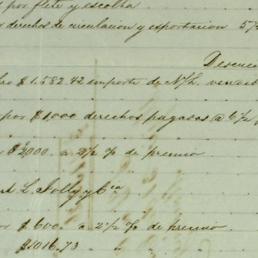 por flete y escolha
derechos de circulacion y exportacion 5%
Descue
$1,582.42 importe de N/L. vencid
por $1000 derechos pagados a 6½
$2000. a 2½ % de premio
L. Jolly y Ca
por $600 a 2½ % de premio
$1016.73